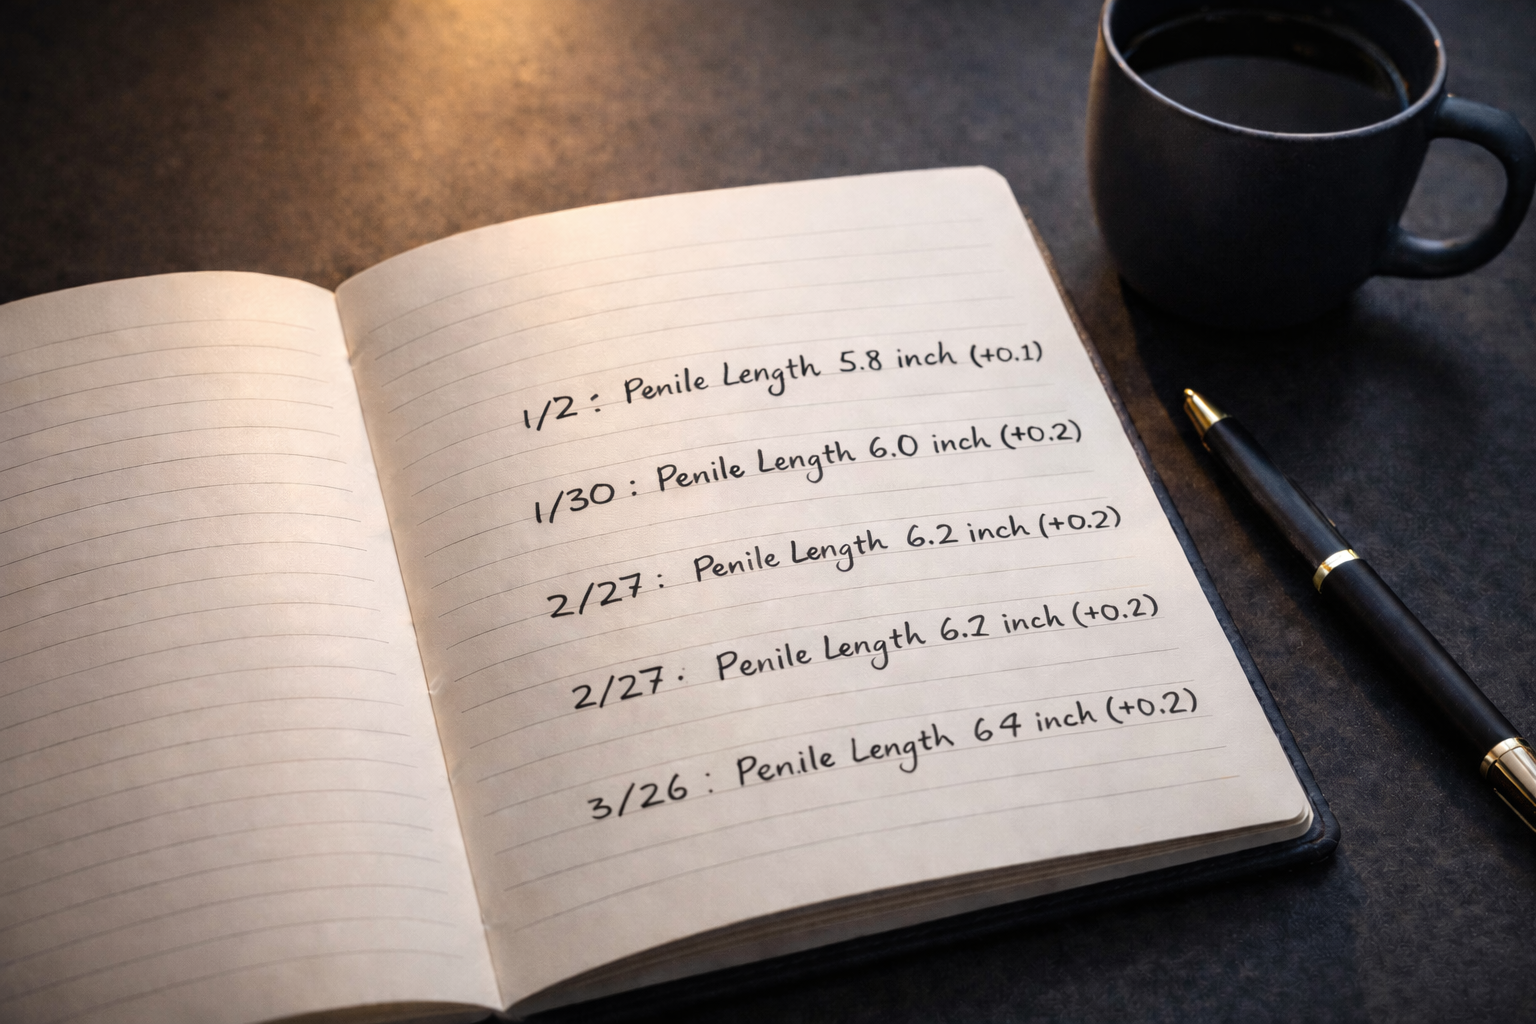 1/2 : Penile Length 5.8 inch (+0.1)
1/30 : Penile Length 6.0 inch (+0.2)
2/27 : Penile Length 6.2 inch (+0.2)
2/27 . Penile Length 6.2 inch (+0.2)
3/26 : Penile Length 6 4 inch (+0.2)